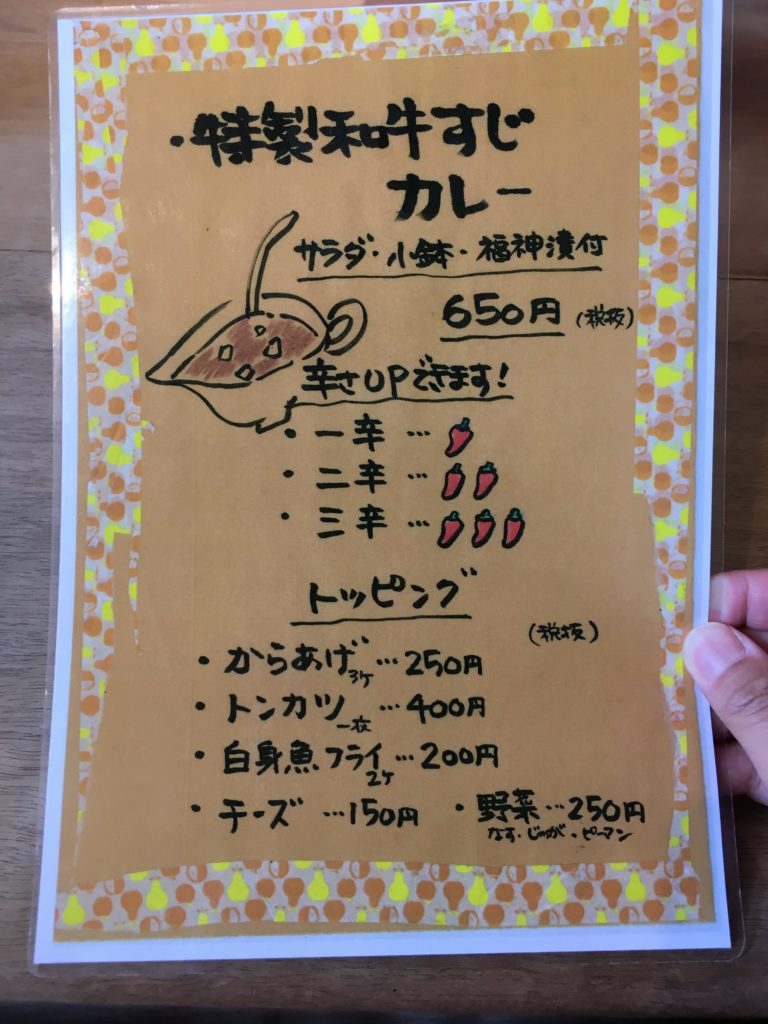 ・特製和牛すじ
カレー
サラダ・小鉢・福神漬付
650円(税抜)
辛さUPできます!
・一辛…
・二辛…
・三辛…
トッピング
(税抜)
・からあげ3ケ…250円
・トンカツ一枚…400円
・白身魚フライ2ケ…200円
・チーズ…150円 ・野菜…250円
なす・じゃが・ピーマン